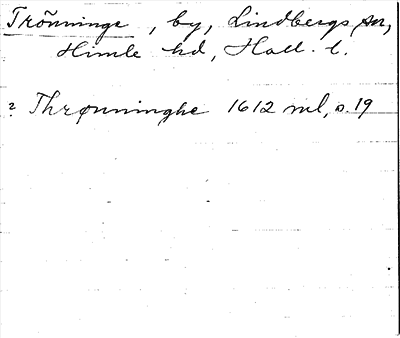 Trönninge, by, Lindbergs sn,
Himle hd, Hall. l.
? Thrønninghe 1612 ml, s. 19